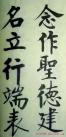 念作聖德建
名立行端表